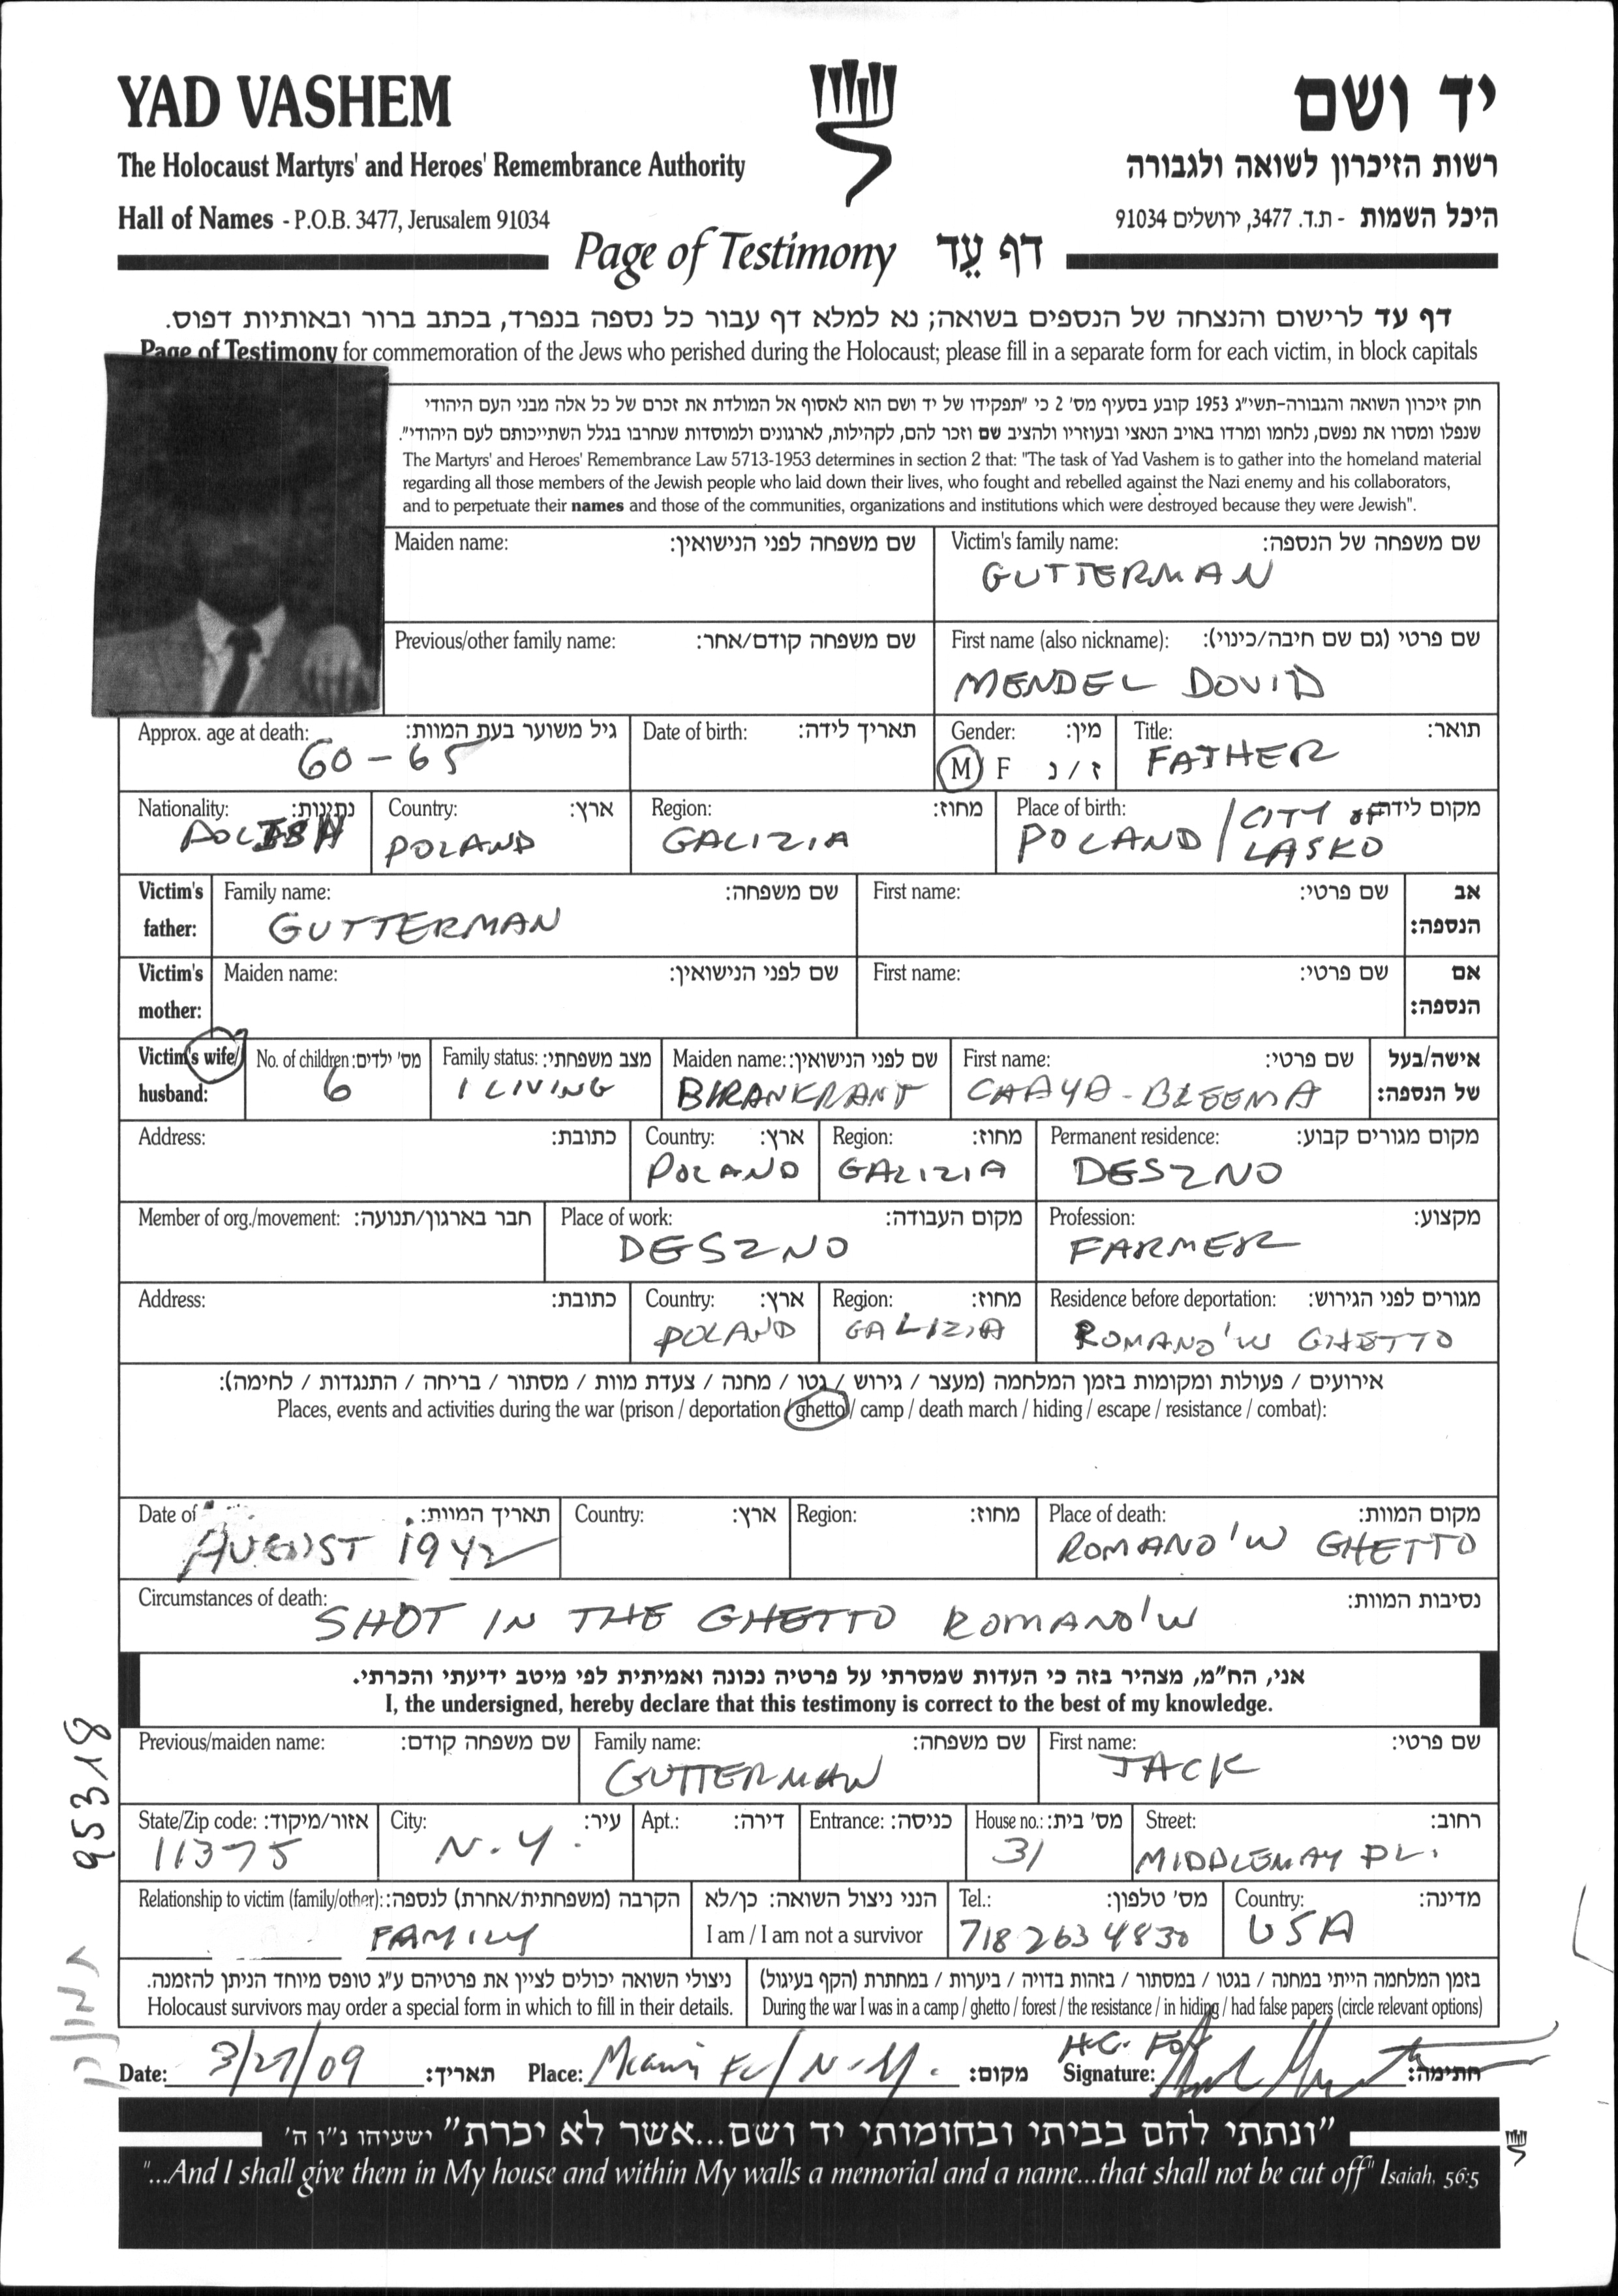 YAD VASHEM
יד ושם
The Holocaust Martyrs' and Heroes' Remembrance Authority
רשות הזיכרון לשואה ולגבורה
Hall of Names - P.O.B. 3477, Jerusalem 91034
היכל השמות - ת.ד. 3477, ירושלים 91034
Page of Testimony דף עֵד
דף עד לרישום והנצחה של הנספים בשואה; נא למלא דף עבור כל נספה בנפרד, בכתב ברור ובאותיות דפוס.
Page of Testimony for commemoration of the Jews who perished during the Holocaust; please fill in a separate form for each victim, in block capitals
חוק זיכרון השואה והגבורה-תשי"ג 1953 קובע בסעיף מס' 2 כי "תפקידו של יד ושם הוא לאסוף אל המולדת את זכרם של כל אלה מבני העם היהודי
שנפלו ומסרו את נפשם, נלחמו ומרדו באויב הנאצי ובעוזריו ולהציב שם וזכר להם, לקהילות, לארגונים ולמוסדות שנחרבו בגלל השתייכותם לעם היהודי".
The Martyrs' and Heroes' Remembrance Law 5713-1953 determines in section 2 that: "The task of Yad Vashem is to gather into the homeland material
regarding all those members of the Jewish people who laid down their lives, who fought and rebelled against the Nazi enemy and his collaborators,
and to perpetuate their names and those of the communities, organizations and institutions which were destroyed because they were Jewish".
Maiden name: שם משפחה לפני הנישואין: Victim's family name: שם משפחה של הנספה:
GUTTERMAN
Previous/other family name: שם משפחה קודם/אחר: First name (also nickname): שם פרטי (גם שם חיבה/כינוי):
MENDEL DOVID
Approx. age at death: גיל משוער בעת המוות: Date of birth: תאריך לידה: Gender: מין: Title: תואר:
60-65 M F ז/נ FATHER
Nationality: נתינות: Country: ארץ: Region: מחוז: Place of birth: מקום לידה:
POLISH POLAND GALIZIA POLAND / CITY OF
LASKO
Victim's father: Family name: שם משפחה: First name: שם פרטי: אב הנספה:
GUTTERMAN
Victim's mother: Maiden name: שם לפני הנישואין: First name: שם פרטי: אם הנספה:
Victim's wife/ husband: No. of children: מס' ילדים: Family status: מצב משפחתי: Maiden name: שם לפני הנישואין: First name: שם פרטי: אישה/בעל של הנספה:
6 1 LIVING BRANKRANT CHAYA-BLEEMA
Address: כתובת: Country: ארץ: Region: מחוז: Permanent residence: מקום מגורים קבוע:
POLAND GALIZIA DESZNO
Member of org./movement: חבר בארגון/תנועה: Place of work: מקום העבודה: Profession: מקצוע:
DESZNO FARMER
Address: כתובת: Country: ארץ: Region: מחוז: Residence before deportation: מגורים לפני הגירוש:
POLAND GALIZIA ROMANO'W GHETTO
אירועים / פעולות ומקומות בזמן המלחמה (מעצר / גירוש / גטו / מחנה / צעדת מוות / מסתור / בריחה / התנגדות / לחימה):
Places, events and activities during the war (prison / deportation / ghetto / camp / death march / hiding / escape / resistance / combat):
Date of תאריך המוות: Country: ארץ: Region: מחוז: Place of death: מקום המוות:
AUGUST 1942 ROMANO'W GHETTO
Circumstances of death: נסיבות המוות:
SHOT IN THE GHETTO ROMANO'W
אני, הח"מ, מצהיר בזה כי העדות שמסרתי על פרטיה נכונה ואמיתית לפי מיטב ידיעתי והכרתי.
I, the undersigned, hereby declare that this testimony is correct to the best of my knowledge.
Previous/maiden name: שם משפחה קודם: Family name: שם משפחה: First name: שם פרטי:
GUTTERMAN JACK
State/Zip code: אזור/מיקוד: City: עיר: Apt.: דירה: Entrance: כניסה: House no.: מס' בית: Street: רחוב:
11375 N.Y. 31 MIDDLEMAY PL.
Relationship to victim (family/other): הקרבה (משפחתית/אחרת) לנספה: הנני ניצול השואה: כן/לא Tel.: מס' טלפון: Country: מדינה:
FAMILY I am / I am not a survivor 718 263 4830 USA
ניצולי השואה יכולים לציין את פרטיהם ע"ג טופס מיוחד הניתן להזמנה. בזמן המלחמה הייתי במחנה / בגטו / במסתור / בזהות בדויה / ביערות / במחתרת (הקף בעיגול)
Holocaust survivors may order a special form in which to fill in their details. During the war I was in a camp / ghetto / forest / the resistance / in hiding / had false papers (circle relevant options)
Date: 3/27/09 תאריך: Place: Miami FL / N.Y. מקום: Signature: חתימה:
"ונתתי להם בביתי ובחומותי יד ושם...אשר לא יכרת" ישעיהו נ"ו ה'
"...And I shall give them in My house and within My walls a memorial and a name...that shall not be cut off" Isaiah, 56:5
95318